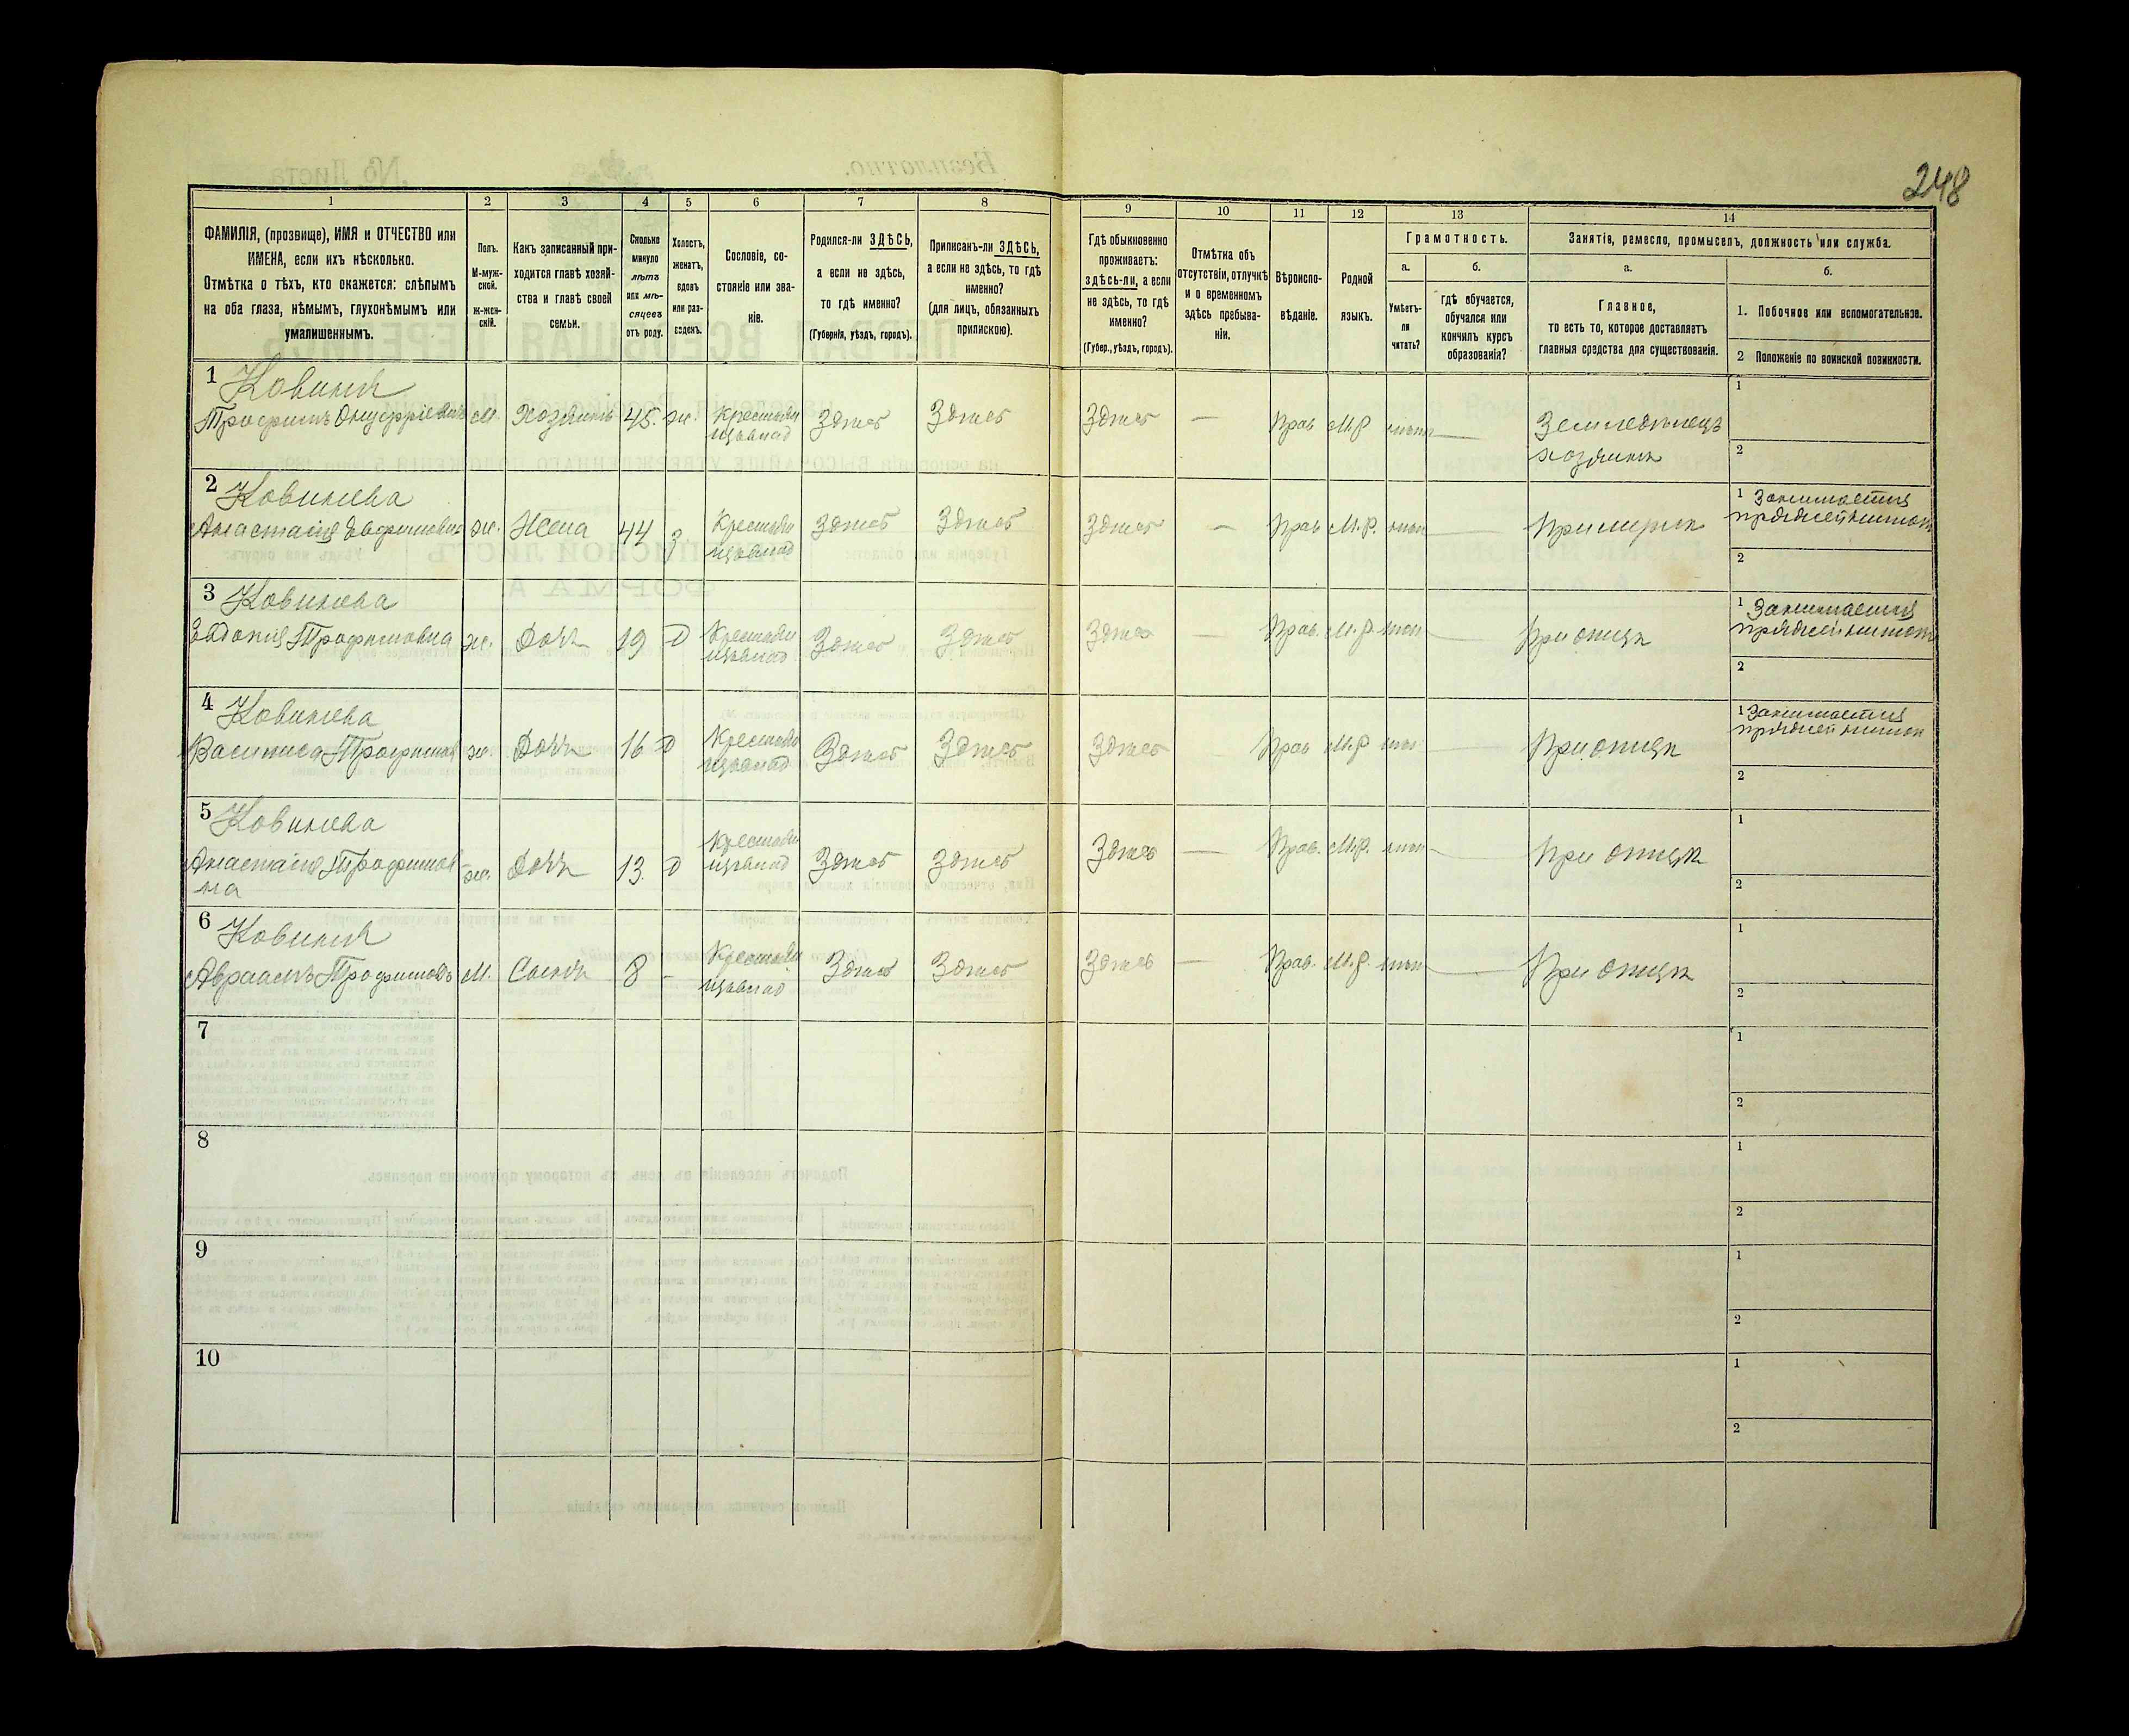 248
1
2
3
4
5
6
7
8
9
10
11
12
13
14
ФАМИЛІЯ, (прозвище), ИМЯ и ОТЧЕСТВО или
ИМЕНА, если ихъ нѣсколько.
Отмѣтка о тѣхъ, кто окажется: слѣпымъ
на оба глаза, нѣмымъ, глухонѣмымъ или
умалишеннымъ.
Полъ.
М-муж-
ской.
Ж-жен-
скій.
Какъ записанный при-
ходится главѣ хозяй-
ства и главѣ своей
семьи.
Сколько
минуло
лѣтъ
или мѣ-
сяцевъ
отъ роду.
Холостъ,
женатъ,
вдовъ
или раз-
веденъ.
Сословіе, со-
стояніе или зва-
ніе.
Родился-ли ЗДѢСЬ,
а если не здѣсь,
то гдѣ именно?
(Губернія, уѣздъ, городъ).
Приписанъ-ли ЗДѢСЬ,
а если не здѣсь, то гдѣ
именно?
(для лицъ, обязанныхъ
припискою).
Гдѣ обыкновенно
проживаетъ:
здѣсь-ли, а если
не здѣсь, то гдѣ
именно?
(Губер., уѣздъ, городъ).
Отмѣтка объ
отсутствіи, отлучкѣ
и о временномъ
здѣсь пребыва-
ніи.
Вѣроиспо-
вѣданіе.
Родной
языкъ.
Грамотность.
а.
Умѣетъ-
ли
читать?
б.
гдѣ обучается,
обучался или
кончилъ курсъ
образованія?
Занятіе, ремесло, промыселъ, должность или служба.
а.
Главное,
то есть то, которое доставляетъ
главныя средства для существованія.
б.
1. Побочное или вспомогательное.
2 Положеніе по воинской повинности.
1 Ковинев
Трофимъ Онуфріевичъ М. Хозяинъ 45. ж. Крестьян Здѣсь Здѣсь Здѣсь — Прав М.Р. нѣтъ — Земледѣлецъ 1
хозяинъ 2
2 Ковинева
Анастасія ж. Жена 44 З Крестьян Здѣсь Здѣсь Здѣсь — Прав М.Р. нѣтъ — При мужѣ 1 Занимается
пряжей нитокъ
2
3 Ковинева
Евдокія Трофимовна ж. Дочь 19 д Крестьян Здѣсь Здѣсь Здѣсь — Прав. М.Р. нѣтъ — При отцѣ 1 Занимается
пряжей нитокъ
2
4 Ковинева
Василиса Трофимов ж. Дочь 16 д Крестьян Здѣсь Здѣсь Здѣсь Прав М.Р. нѣтъ — При отцѣ 1 Занимается
пряжей нитокъ
2
5 Ковинева
Анастасія Трофимов ж. Дочь 13. д Крестьян Здѣсь Здѣсь Здѣсь — Прав. М.Р. нѣтъ — При отцѣ 1
на 2
6 Ковинев
Авраамъ Трофимовъ М. Сынъ 8 - Крестьян Здѣсь Здѣсь Здѣсь — Прав. М.Р. нѣтъ — При отцѣ 1
2
7 1
2
8 1
2
9 1
2
10 1
2